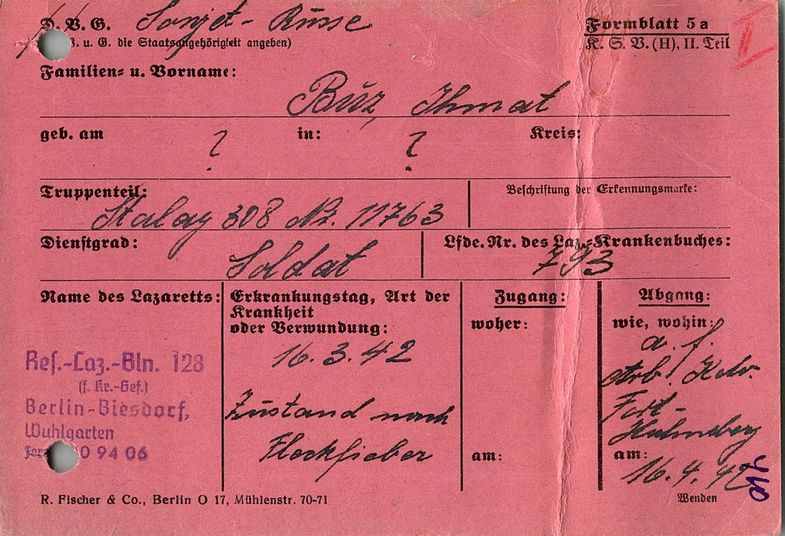 D. V. G. Sowjet-Russe
Formblatt 5a
u. G. die Staatsangehörigkeit angeben)
K. S. V. (H), II. Teil
II
Familien- u. Vorname:
Buz, Ihmat
geb. am ? in: ? Kreis:
Truppenteil:
Beschriftung der Erkennungsmarke:
Stalag 308 Nr. 11763
Dienstgrad:
Lfde. Nr. des Laz.-Krankenbuches:
Soldat
793
Name des Lazaretts:
Res.-Laz.-Bln. 128
(f. Kr.-Gef.)
Berlin-Biesdorf,
Wuhlgarten
0 94 06
Erkrankungstag, Art der
Krankheit
oder Verwundung:
16.3.42
Zustand nach
Fleckfieber
Zugang:
woher:
am:
Abgang:
wie, wohin:
a. f.
Arb.
Fort-
am:
16.4.42
R. Fischer & Co., Berlin O 17, Mühlenstr. 70-71
Wenden